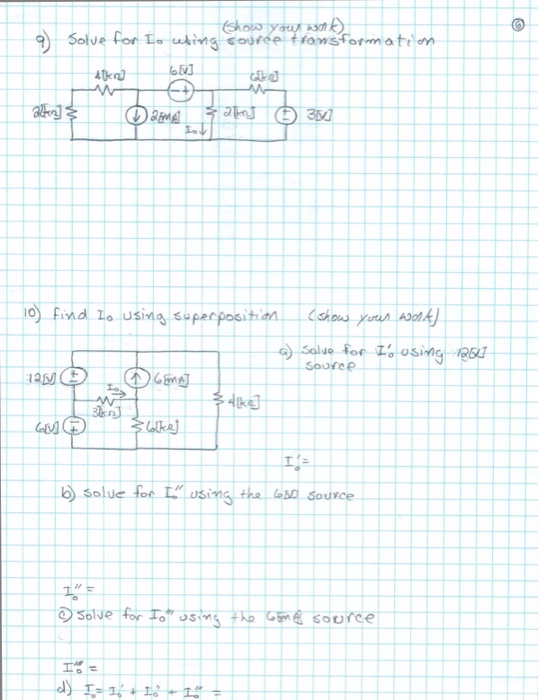 (show your work)
9) Solve for Io using source transformation
4[kΩ]
6[V]
6[kΩ]
2[kΩ]
2[mA]
2[kΩ]
3[V]
Io
10) find Io using superposition (show your work)
a) Solve for Io' using 12[V]
source
12[V]
6[mA]
Io
3[kΩ]
4[kΩ]
6[V]
6[kΩ]
Io' =
b) solve for Io'' using the 6[V] source
Io'' =
c) solve for Io''' using the 6[mA] source
Io''' =
d) Io = Io' + Io'' + Io''' =